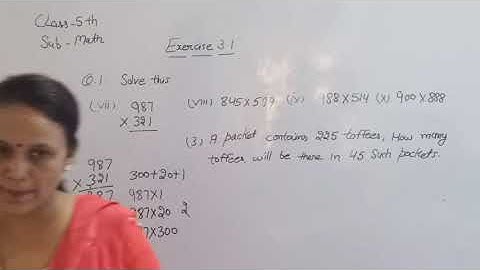 Class-5th
Sub-Math
Exercise 3.1
Q.1 Solve this
(vii) 987
× 321
(viii) 845×599 (ix) 988×514 (x) 900×888
(3) A packet contains 225 toffees, How many
toffees will be there in 45 Such packets.
987
× 321 300+20+1
987 987×1
987×20 2
×300